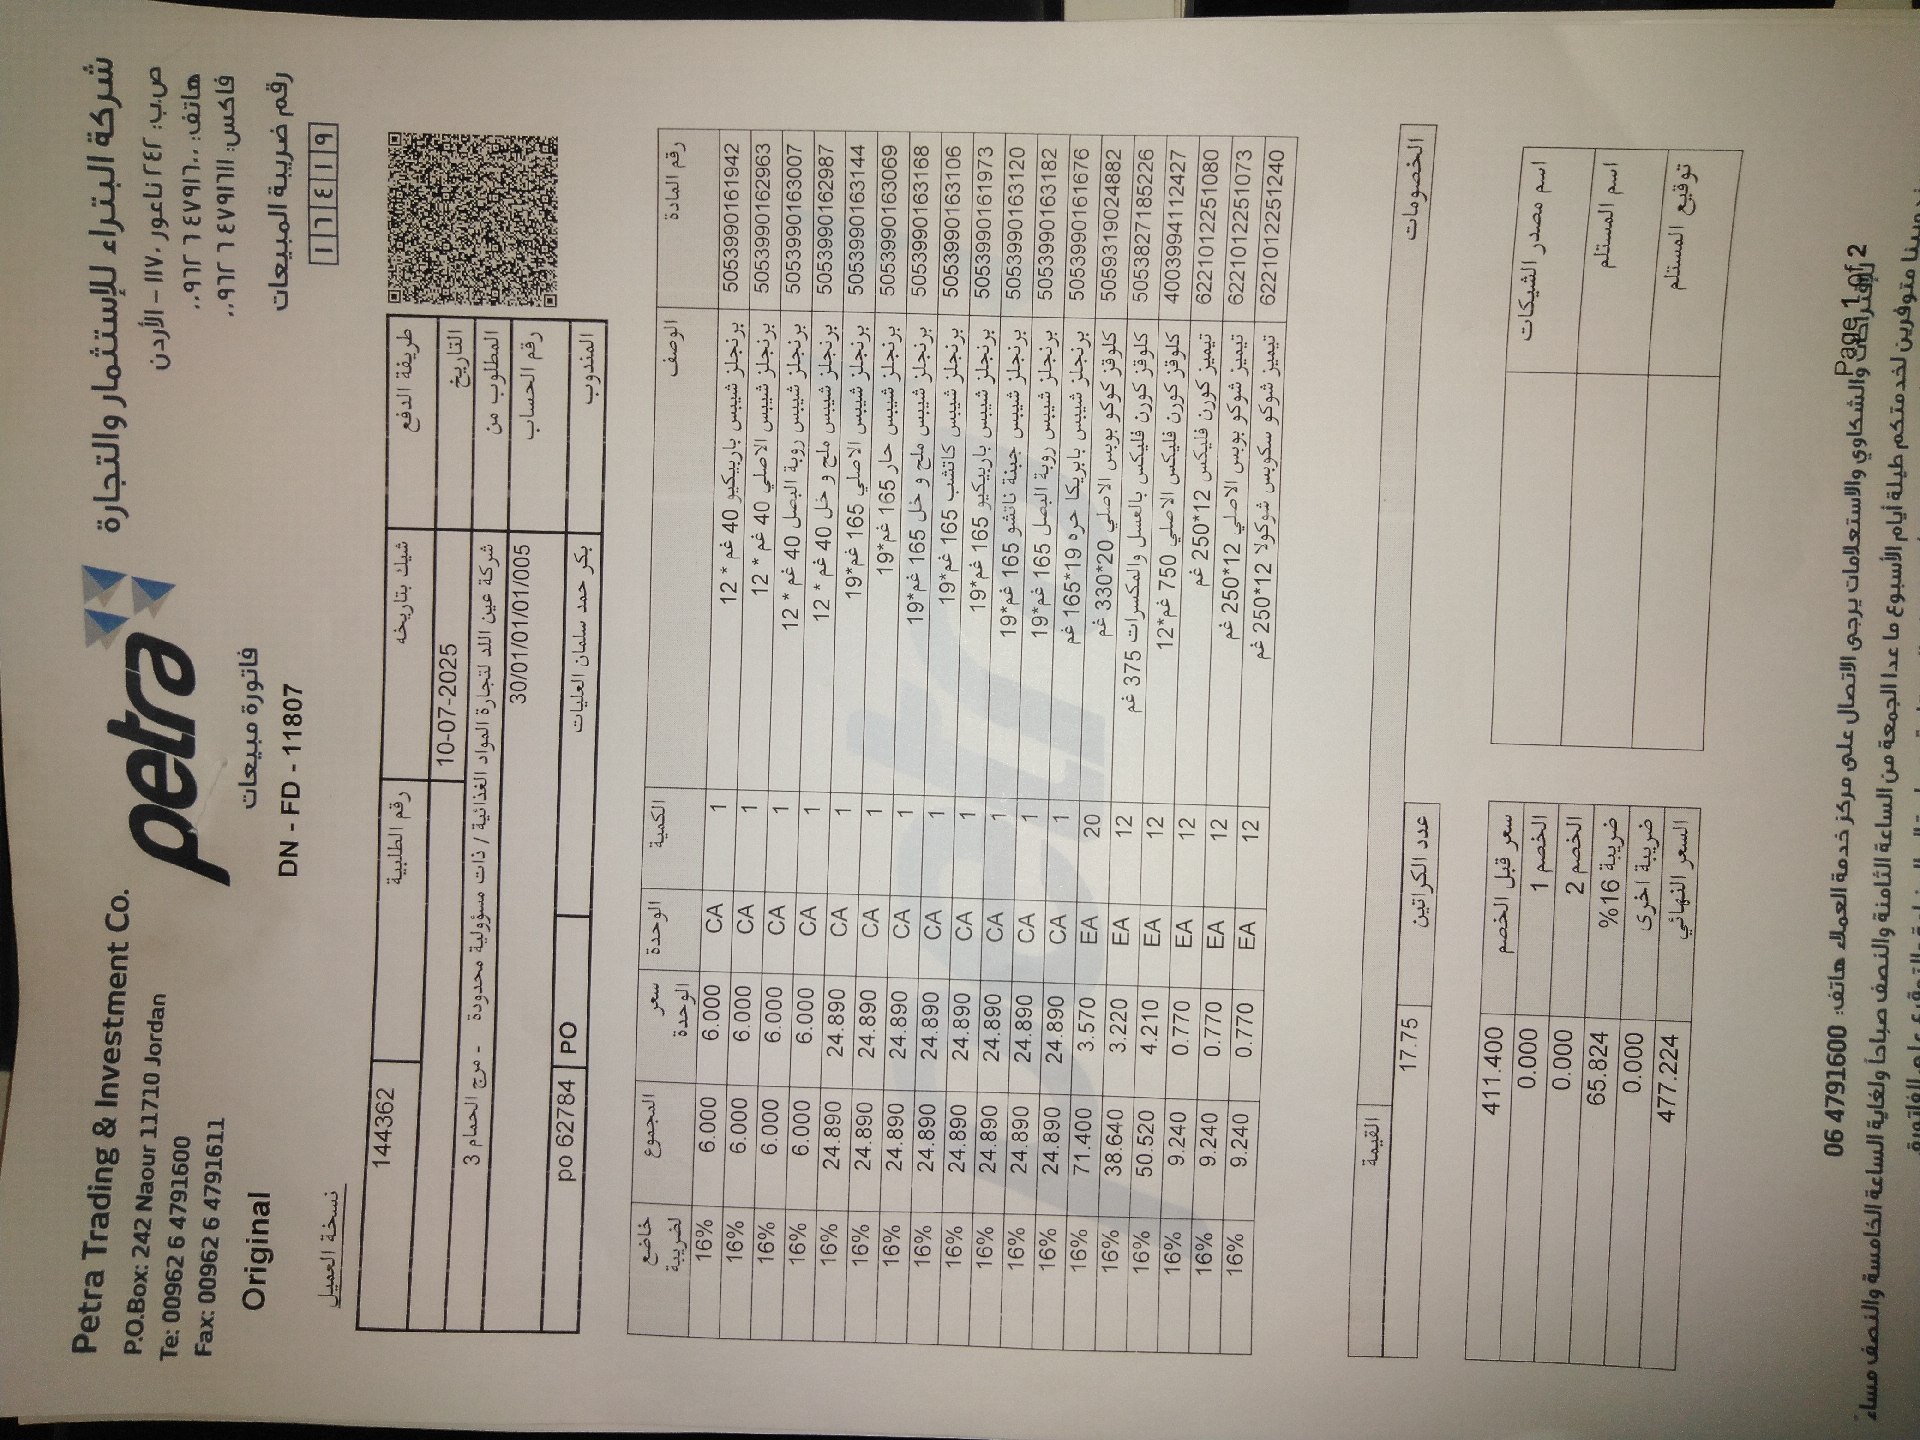 Petra Trading & Investment Co.
P.O.Box: 242 Naour 11710 Jordan
Te: 00962 6 4791600
Fax: 00962 6 4791611
petra
شركة البتراء للإستثمار والتجارة
ص.ب: ٢٤٢ ناعور ١١٧١٠ - الأردن
هاتف: ٤٧٩١٦٠٠ ٦ ٠٠٩٦٢
فاكس: ٤٧٩١٦١١ ٦ ٠٠٩٦٢
Original
فاتورة مبيعات
رقم ضريبة المبيعات
DN - FD - 11807
١٦٤١٩
نسخة العميل
طريقة الدفع شيك بتاريخه رقم الطلبية 144362
التاريخ 10-07-2025
المطلوب من شركة عين اللد لتجارة المواد الغذائية / ذات مسؤولية محدودة - مرج الحمام 3
رقم الحساب 30/01/01/01/005
المندوب بكر حمد سلمان العليات PO po 62784
رقم المادة الوصف الكمية الوحدة سعر الوحدة المجموع خاضع لضريبة
5053990161942 برنجلز شيبس باربيكيو 40 غم * 12 1 CA 6.000 6.000 16%
5053990162963 برنجلز شيبس الاصلي 40 غم * 12 1 CA 6.000 6.000 16%
5053990163007 برنجلز شيبس روبة البصل 40 غم * 12 1 CA 6.000 6.000 16%
5053990162987 برنجلز شيبس ملح و خل 40 غم * 12 1 CA 6.000 6.000 16%
5053990163144 برنجلز شيبس الاصلي 165 غم*19 1 CA 24.890 24.890 16%
5053990163069 برنجلز شيبس حار 165 غم*19 1 CA 24.890 24.890 16%
5053990163168 برنجلز شيبس ملح و خل 165 غم*19 1 CA 24.890 24.890 16%
5053990163106 برنجلز شيبس كاتشب 165 غم*19 1 CA 24.890 24.890 16%
5053990161973 برنجلز شيبس باربيكيو 165 غم*19 1 CA 24.890 24.890 16%
5053990163120 برنجلز شيبس جبنة ناتشو 165 غم*19 1 CA 24.890 24.890 16%
5053990163182 برنجلز شيبس روبة البصل 165 غم*19 1 CA 24.890 24.890 16%
5053990161676 برنجلز شيبس بابريكا حره 19*165 غم 1 CA 24.890 24.890 16%
5059319024882 كلوقز كوكو بوبس الاصلي 20*330 غم 20 EA 3.570 71.400 16%
5053827185226 كلوقز كورن فليكس بالعسل والمكسرات 375 غم 12 EA 3.220 38.640 16%
4003994112427 كلوقز كورن فليكس الاصلي 750 غم*12 12 EA 4.210 50.520 16%
6221012251080 تيميز كورن فليكس 12*250 غم 12 EA 0.770 9.240 16%
6221012251073 تيميز شوكو بوبس الاصلي 12*250 غم 12 EA 0.770 9.240 16%
6221012251240 تيميز شوكو سكوبس شوكولا 12*250 غم 12 EA 0.770 9.240 16%
الخصومات عدد الكراتين 17.75
القيمة
اسم مصدر الشيكات
اسم المستلم
توقيع المستلم
سعر قبل الخصم 411.400
الخصم 1 0.000
الخصم 2 0.000
ضريبة 16% 65.824
ضريبة اخرى 0.000
السعر النهائي 477.224
Page 1 of 2
والشكاوي والاستعلامات يرجى الاتصال على مركز خدمة العملاء هاتف: 06 4791600
متوفرين لخدمتكم طيلة أيام الأسبوع ما عدا الجمعة من الساعة الثامنة والنصف صباحاً ولغاية الساعة الخامسة والنصف مساءً